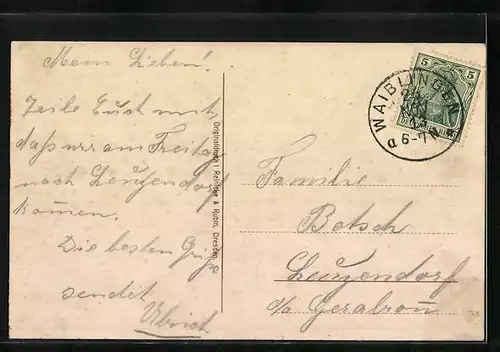 Meine Lieben!
Teile Euch mit,
daß wir am Freitag
nach Leuzendorf
kommen.
Die besten Grüße
sendet
Originaldruck Reinicke & Rubin, Dresden.
5 5
WAIBLINGEN
6-7
Familie
Botsch
Leuzendorf
Gerabronn